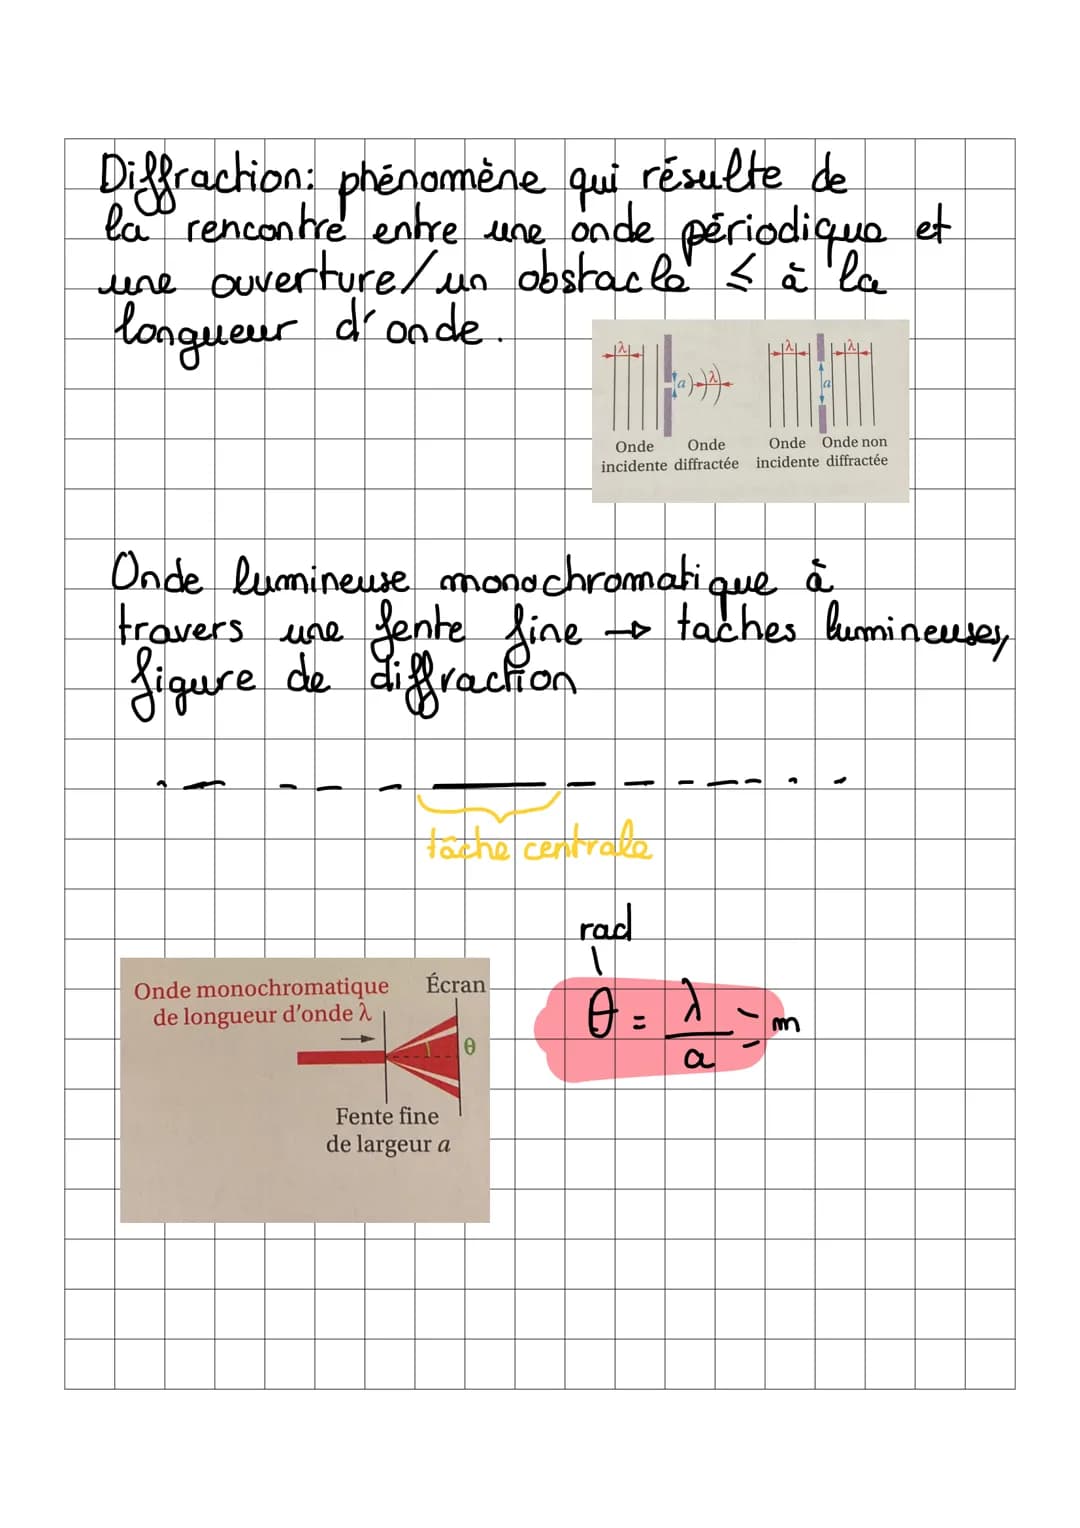 Diffraction: phénomène qui résulte de
la rencontre entre une onde périodique et
une ouverture/un obstacle ⩽ à la
longueur d'onde.
λ λ λ λ
a a
Onde Onde Onde Onde non
incidente diffractée incidente diffractée
Onde lumineuse monochromatique à
travers une fente fine → taches lumineuses,
figure de diffraction
tâche centrale
rad
θ = λ/a = m
Onde monochromatique Écran
de longueur d'onde λ
θ
Fente fine
de largeur a